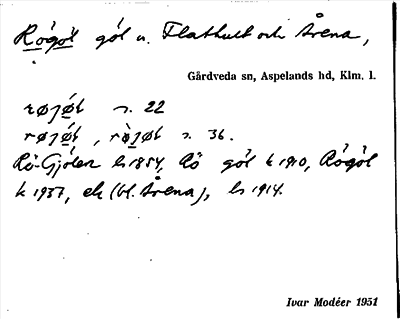 Rögöl göl u. Flathult och Årena,
Gårdveda sn, Aspelands hd, Klm. l.
røjøl s. 22
røjøl, røjøl s. 36.
Rö-Gjölen ls 1854, Rö göl k 1910, Rögöl
k 1937, ek (bl. Årena), ls 1914.
Ivar Modéer 1951